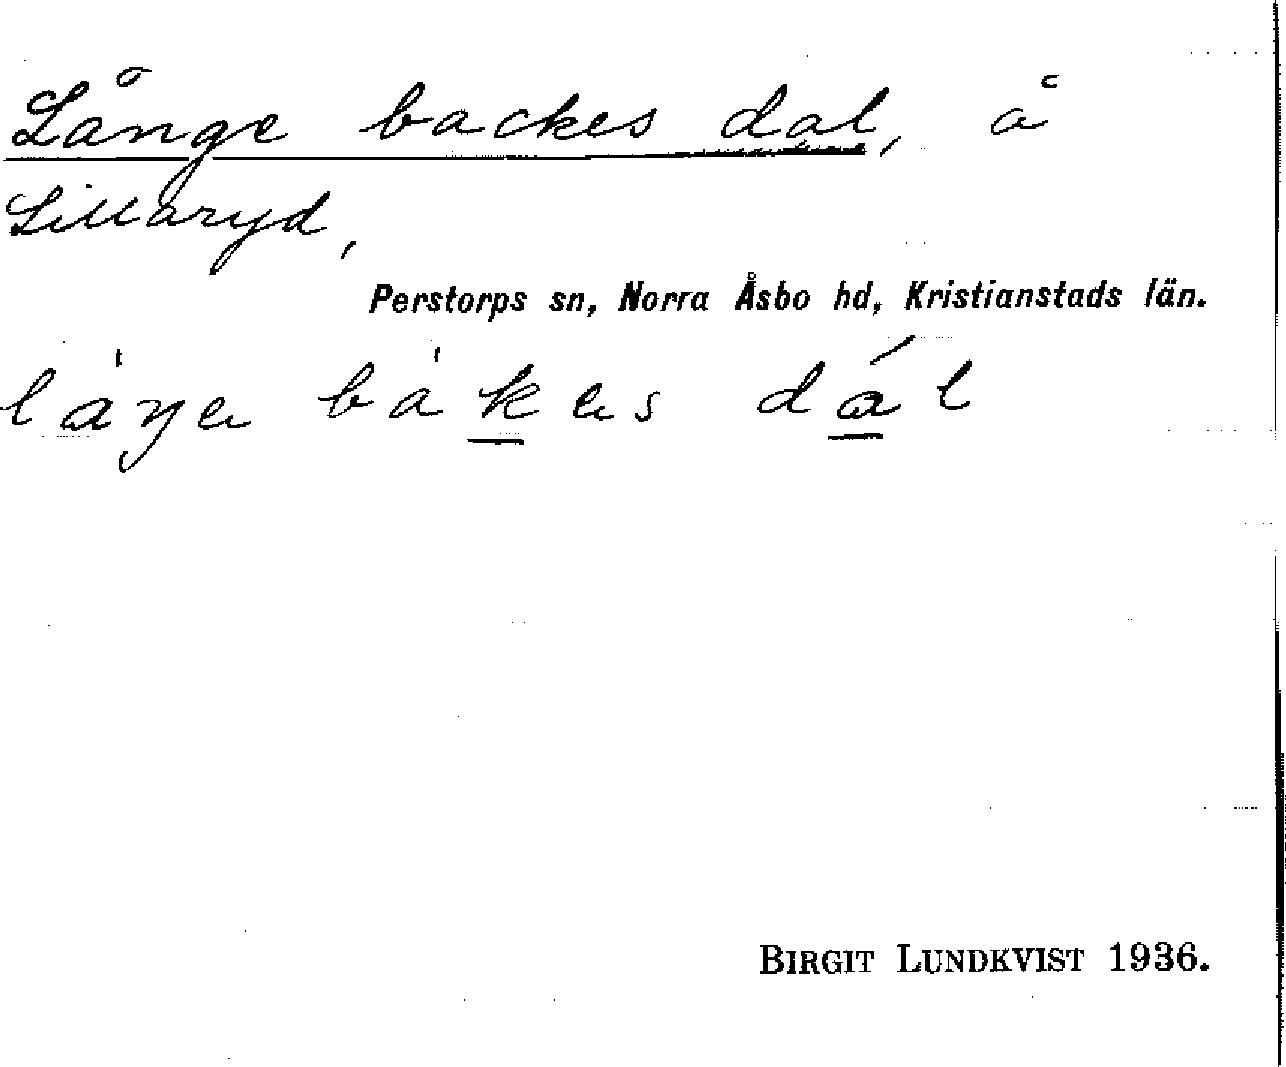 Långe backes dal, å
Lillaryd,
Perstorps sn, Norra Åsbo hd, Kristianstads län.
BIRGIT LUNDKVIST 1936.